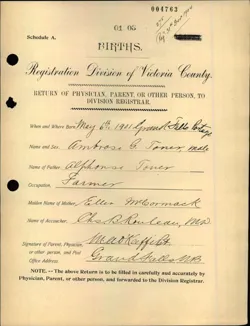 004763
Schedule A.
BIRTHS.
Registration Division of Victoria County.
RETURN OF PHYSICIAN, PARENT, OR OTHER PERSON, TO
DIVISION REGISTRAR.
When and Where Born, May 6th 1911 Grand Falls
Name and Sex, Ambrose A. Toner male
Name of Father, Alphonse Toner
Occupation, Farmer
Maiden Name of Mother, Ellen McCormack
Name of Accoucher, Chas R. Rouleau, MD
Signature of Parent, Physician,
or other person, and Post
Office Address, Grand Falls N.B.
NOTE.—The above Return is to be filled in carefully and accurately by
Physician, Parent, or other person, and forwarded to the Division Registrar.